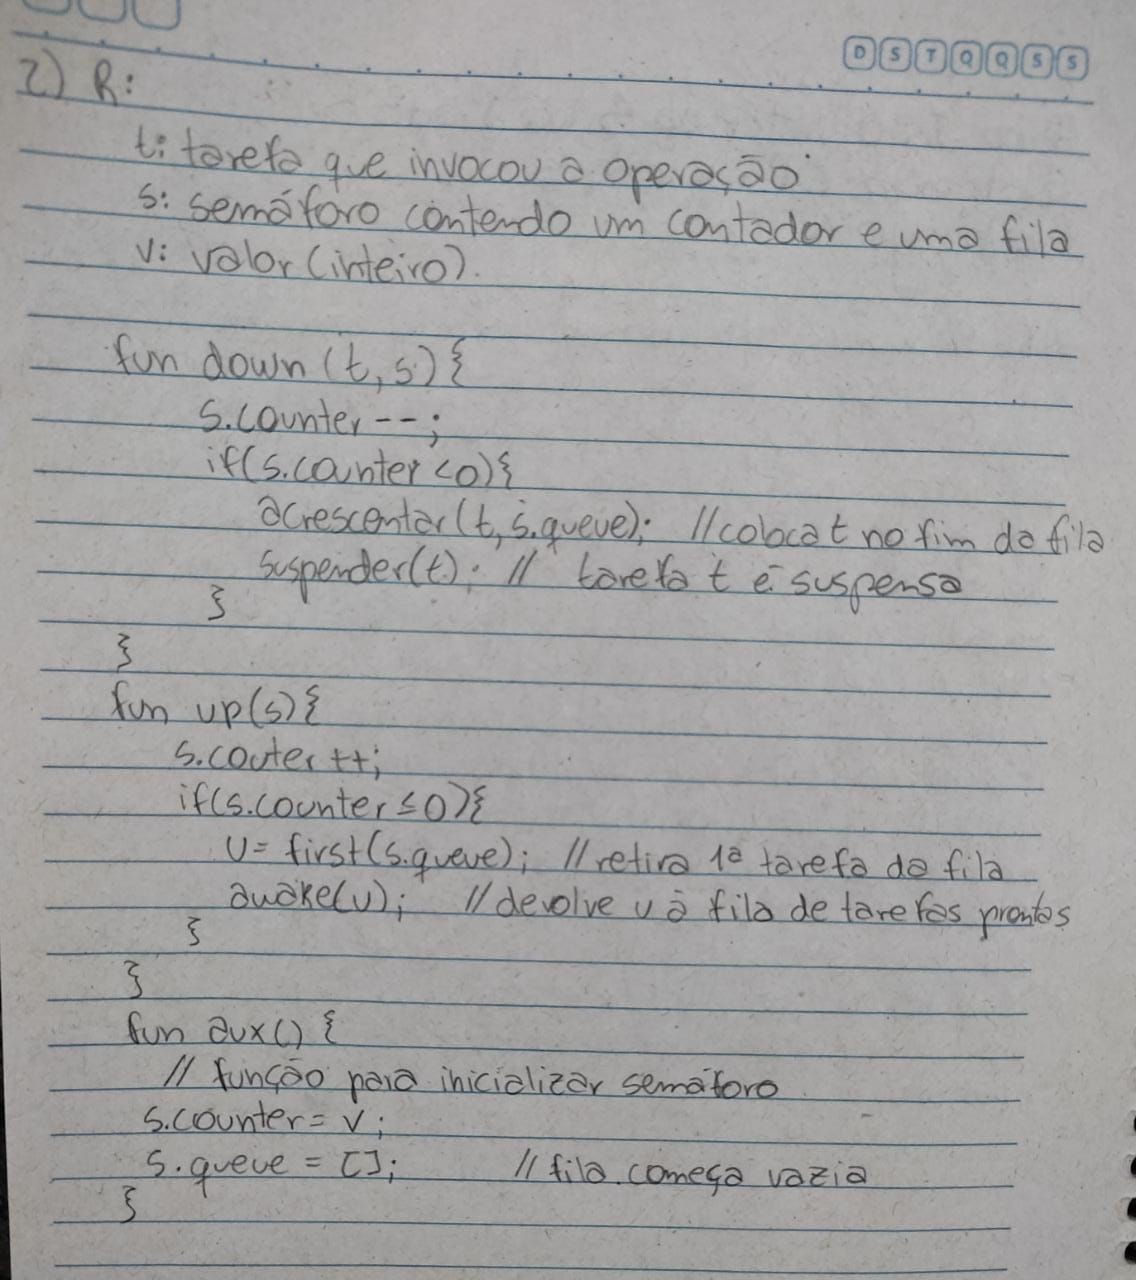 D S T Q Q S S
2) R:
t: tarefa que invocou a operação
s: semáforo contendo um contador e uma fila
v: valor (inteiro).
fun down (t, s) {
s.counter --;
if(s.counter <0){
acrescentar(t, s.queue); //coloca t no fim da fila
suspender(t). // tarefa t é suspensa
}
}
fun up(s){
s.couter ++;
if(s.counter ≤ 0){
u= first(s.queue); //retira 1ª tarefa da fila
awake(u); //devolve u à fila de tarefas prontas
}
}
fun aux() {
// função para inicializar semáforo
s.counter = v;
s.queue = []; // fila começa vazia
}